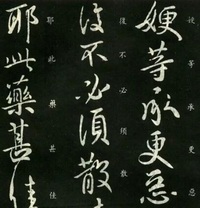 等承更惡
嫂等承更惡
後不必須散
後不必須散
耶此藥甚佳
耶此藥甚佳